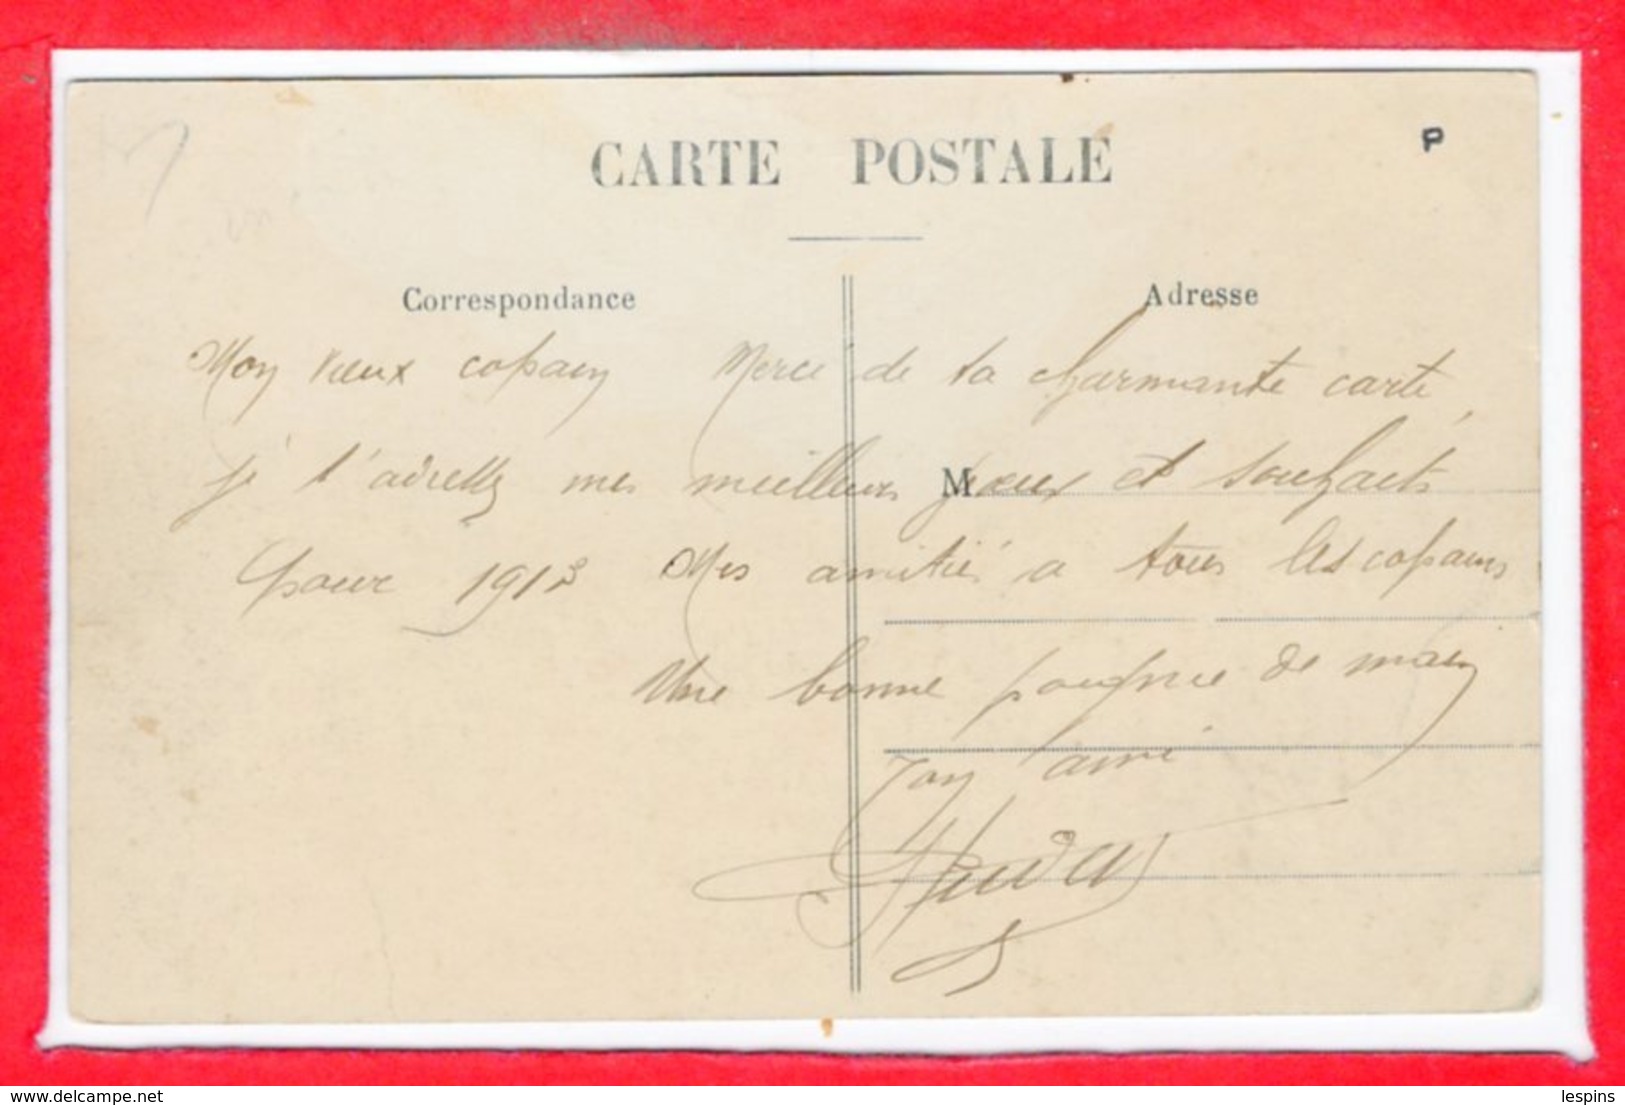 CARTE POSTALE
P
Correspondance
Adresse
Mon vieux copain Merci de ta charmante carte,
je t'adresse mes meilleurs vœux et souhaits
M
pour 1913 Mes amitiés a tous les copains
Une bonne poignée de main
Ton ami
delcampe.net
lespins